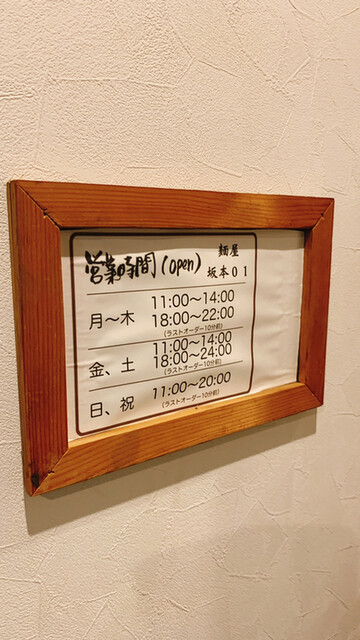 営業時間(open)
麺屋
坂本01
月〜木
11:00〜14:00
18:00〜22:00
(ラストオーダー10分前)
金、土
11:00〜14:00
18:00〜24:00
(ラストオーダー10分前)
日、祝
11:00〜20:00
(ラストオーダー10分前)